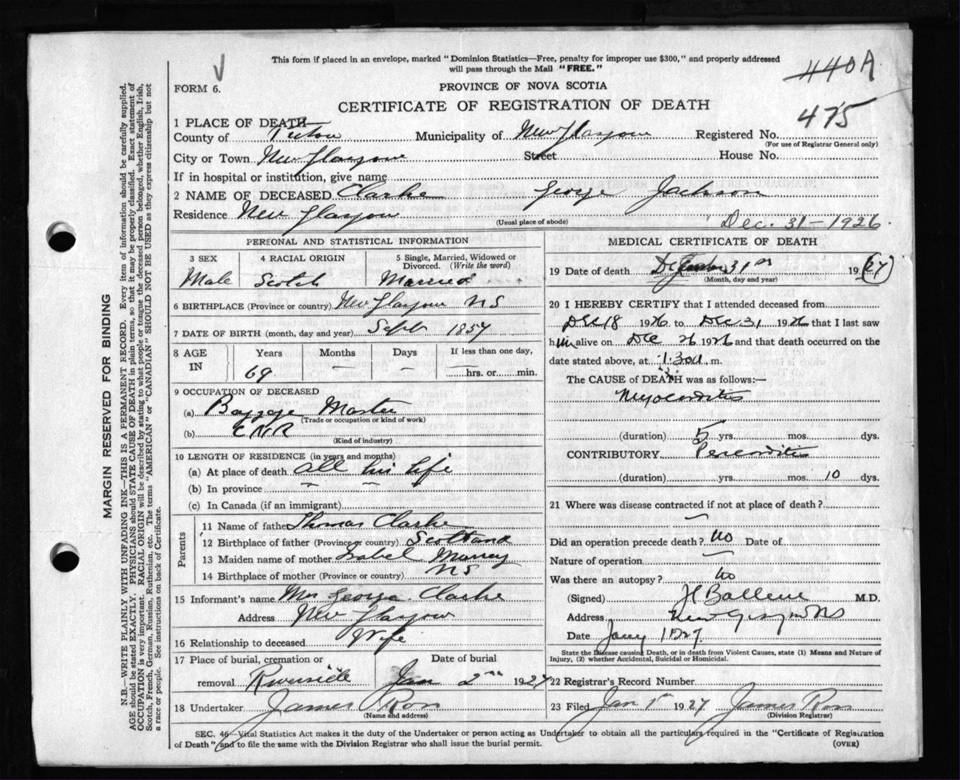 This form if placed in an envelope, marked "Dominion Statistics—Free, penalty for improper use $300," and properly addressed
will pass through the Mail "FREE."
440A
FORM 6.
PROVINCE OF NOVA SCOTIA
CERTIFICATE OF REGISTRATION OF DEATH
475
1 PLACE OF DEATH
County of Pictou Municipality of New Glasgow Registered No.
(For use of Registrar General only)
City or Town New Glasgow Street House No.
If in hospital or institution, give name
2 NAME OF DECEASED Clarke George Jackson
Residence New Glasgow (Usual place of abode) Dec. 31—1926
MARGIN RESERVED FOR BINDING
N.B.—WRITE PLAINLY WITH UNFADING INK—THIS IS A PERMANENT RECORD. Every item of information should be carefully supplied.
AGE should be stated EXACTLY. PHYSICIANS should STATE CAUSE OF DEATH in plain terms, so that it may be properly classified. Exact statement of
OCCUPATION is very important. RACIAL ORIGIN will be described by stating to what people or tongue the deceased person belonged, whether English, Irish,
Scotch, French, German, Russian, Ruthenian, etc. The terms "AMERICAN" or "CANADIAN" SHOULD NOT BE USED as they express citizenship but not
a race or people. See instructions on back of Certificate.
PERSONAL AND STATISTICAL INFORMATION
3 SEX 4 RACIAL ORIGIN 5 Single, Married, Widowed or
Divorced. (Write the word)
Male Scotch Married
6 BIRTHPLACE (Province or country) New Glasgow NS
7 DATE OF BIRTH (month, day and year) Sept 1857
8 AGE IN Years Months Days If less than one day,
69 — — hrs. or min.
9 OCCUPATION OF DECEASED
(a) Baggage Master
(Trade or occupation or kind of work)
(b) CNR
(Kind of industry)
10 LENGTH OF RESIDENCE (in years and months)
(a) At place of death all his life
(b) In province
(c) In Canada (if an immigrant)
Parents
11 Name of father Thomas Clarke
12 Birthplace of father (Province or country) Scotland
13 Maiden name of mother Isabel Murray
14 Birthplace of mother (Province or country) NS
15 Informant's name Mrs George Clarke
Address New Glasgow
16 Relationship to deceased Wife
17 Place of burial, cremation or Date of burial
removal Riverside Jan 2nd 1927
18 Undertaker James Ross
(Name and address)
MEDICAL CERTIFICATE OF DEATH
19 Date of death 31st 19 (27)
(Month, day and year)
20 I HEREBY CERTIFY that I attended deceased from
Dec 18 1926 to Dec 31 1926 that I last saw
him alive on Dec 26 1926 and that death occurred on the
date stated above, at 1:30 a m.
The CAUSE of DEATH was as follows:—
Myocarditis
(duration) 5 yrs. mos. dys.
CONTRIBUTORY Pericarditis
(duration) yrs. mos. 10 dys.
21 Where was disease contracted if not at place of death?
Did an operation precede death? no Date of
Nature of operation
Was there an autopsy? no
(Signed) M.D.
Address New Glasgow NS
Date Jany 1 1927
State the Disease causing Death, or in death from Violent Causes, state (1) Means and Nature of
Injury, (2) whether Accidental, Suicidal or Homicidal.
22 Registrar's Record Number
23 Filed Jan 1st 1927 James Ross
(Division Registrar)
SEC. 46—Vital Statistics Act makes it the duty of the Undertaker or person acting as Undertaker to obtain all the particulars required in the "Certificate of Registration
of Death" and to file the same with the Division Registrar who shall issue the burial permit. (OVER)